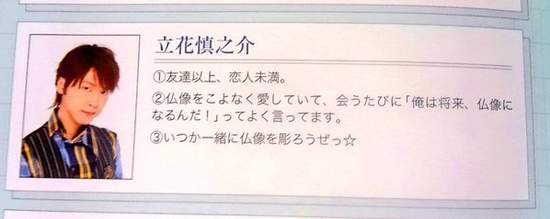 立花慎之介
①友達以上、恋人未満。
②仏像をこよなく愛していて、会うたびに「俺は将来、仏像に
なるんだ！」ってよく言ってます。
③いつか一緒に仏像を彫ろうぜっ☆